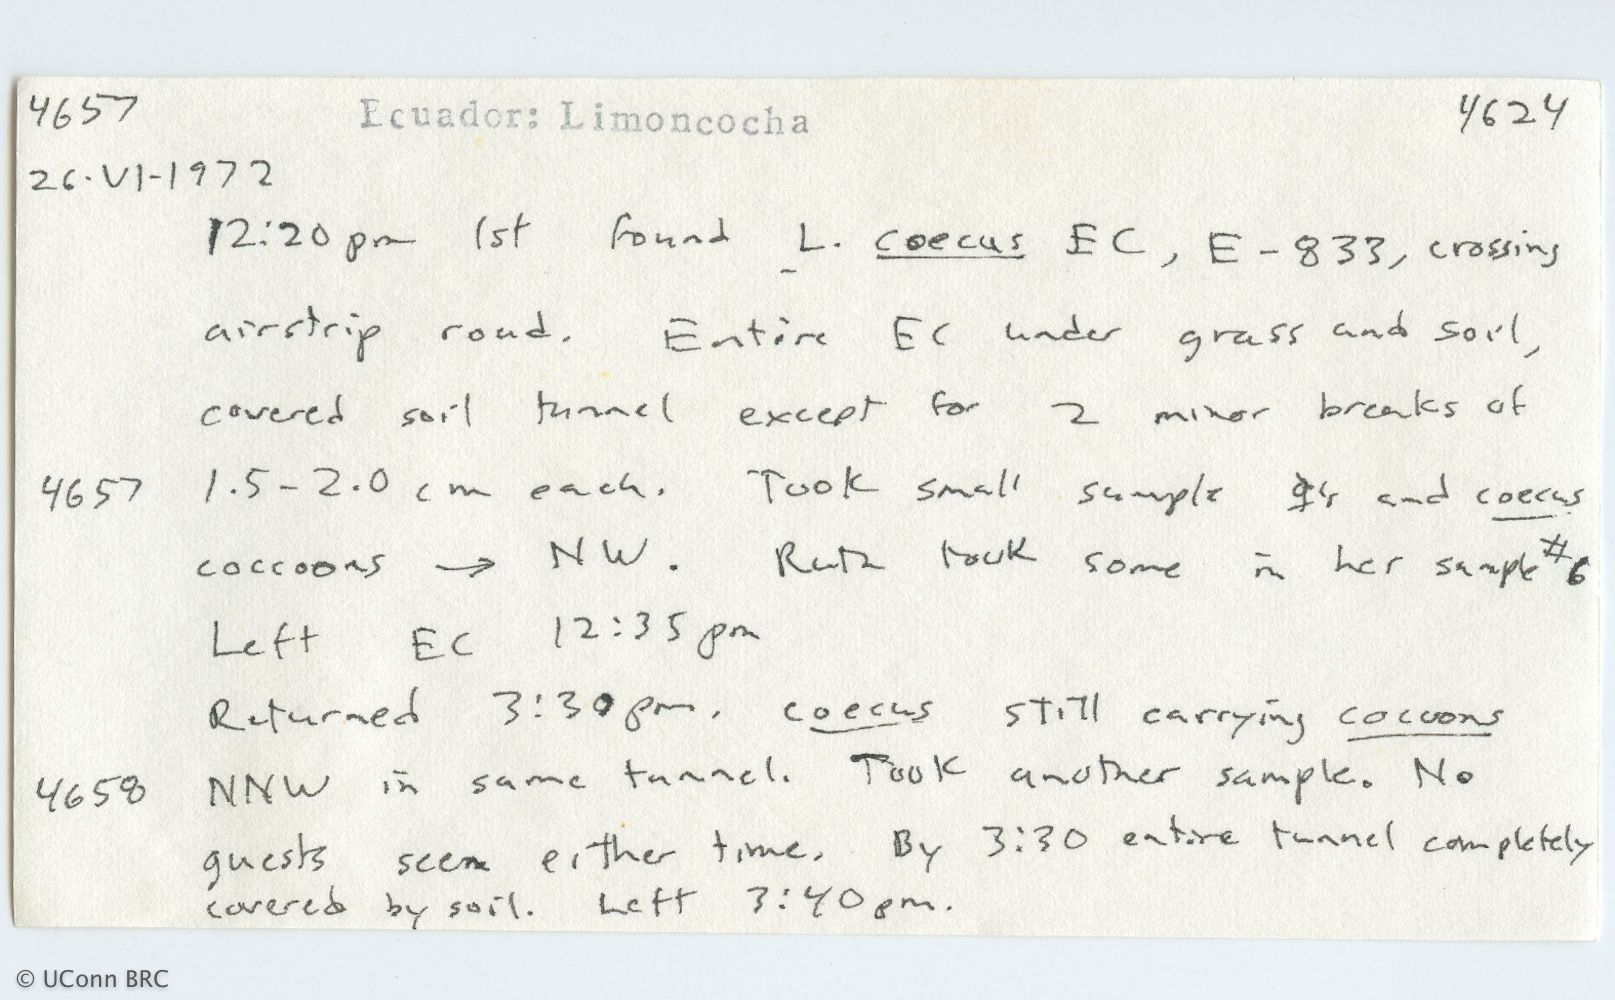 4657 Ecuador: Limoncocha 4624
26-VI-1972
12:20pm 1st found L. coecus EC, E-833, crossing
airstrip road. Entire EC under grass and soil,
covered soil tunnel except for 2 minor breaks of
4657 1.5-2.0 cm each. Took small sample and coecus
coccoons → NW. Ruth took some in her sample #6
Left EC 12:35pm
Returned 3:30pm. coecus still carrying cocoons
4658 NNW in same tunnel. Took another sample. No
guests seen either time. By 3:30 entire tunnel completely
covered by soil. Left 3:40pm.
© UConn BRC